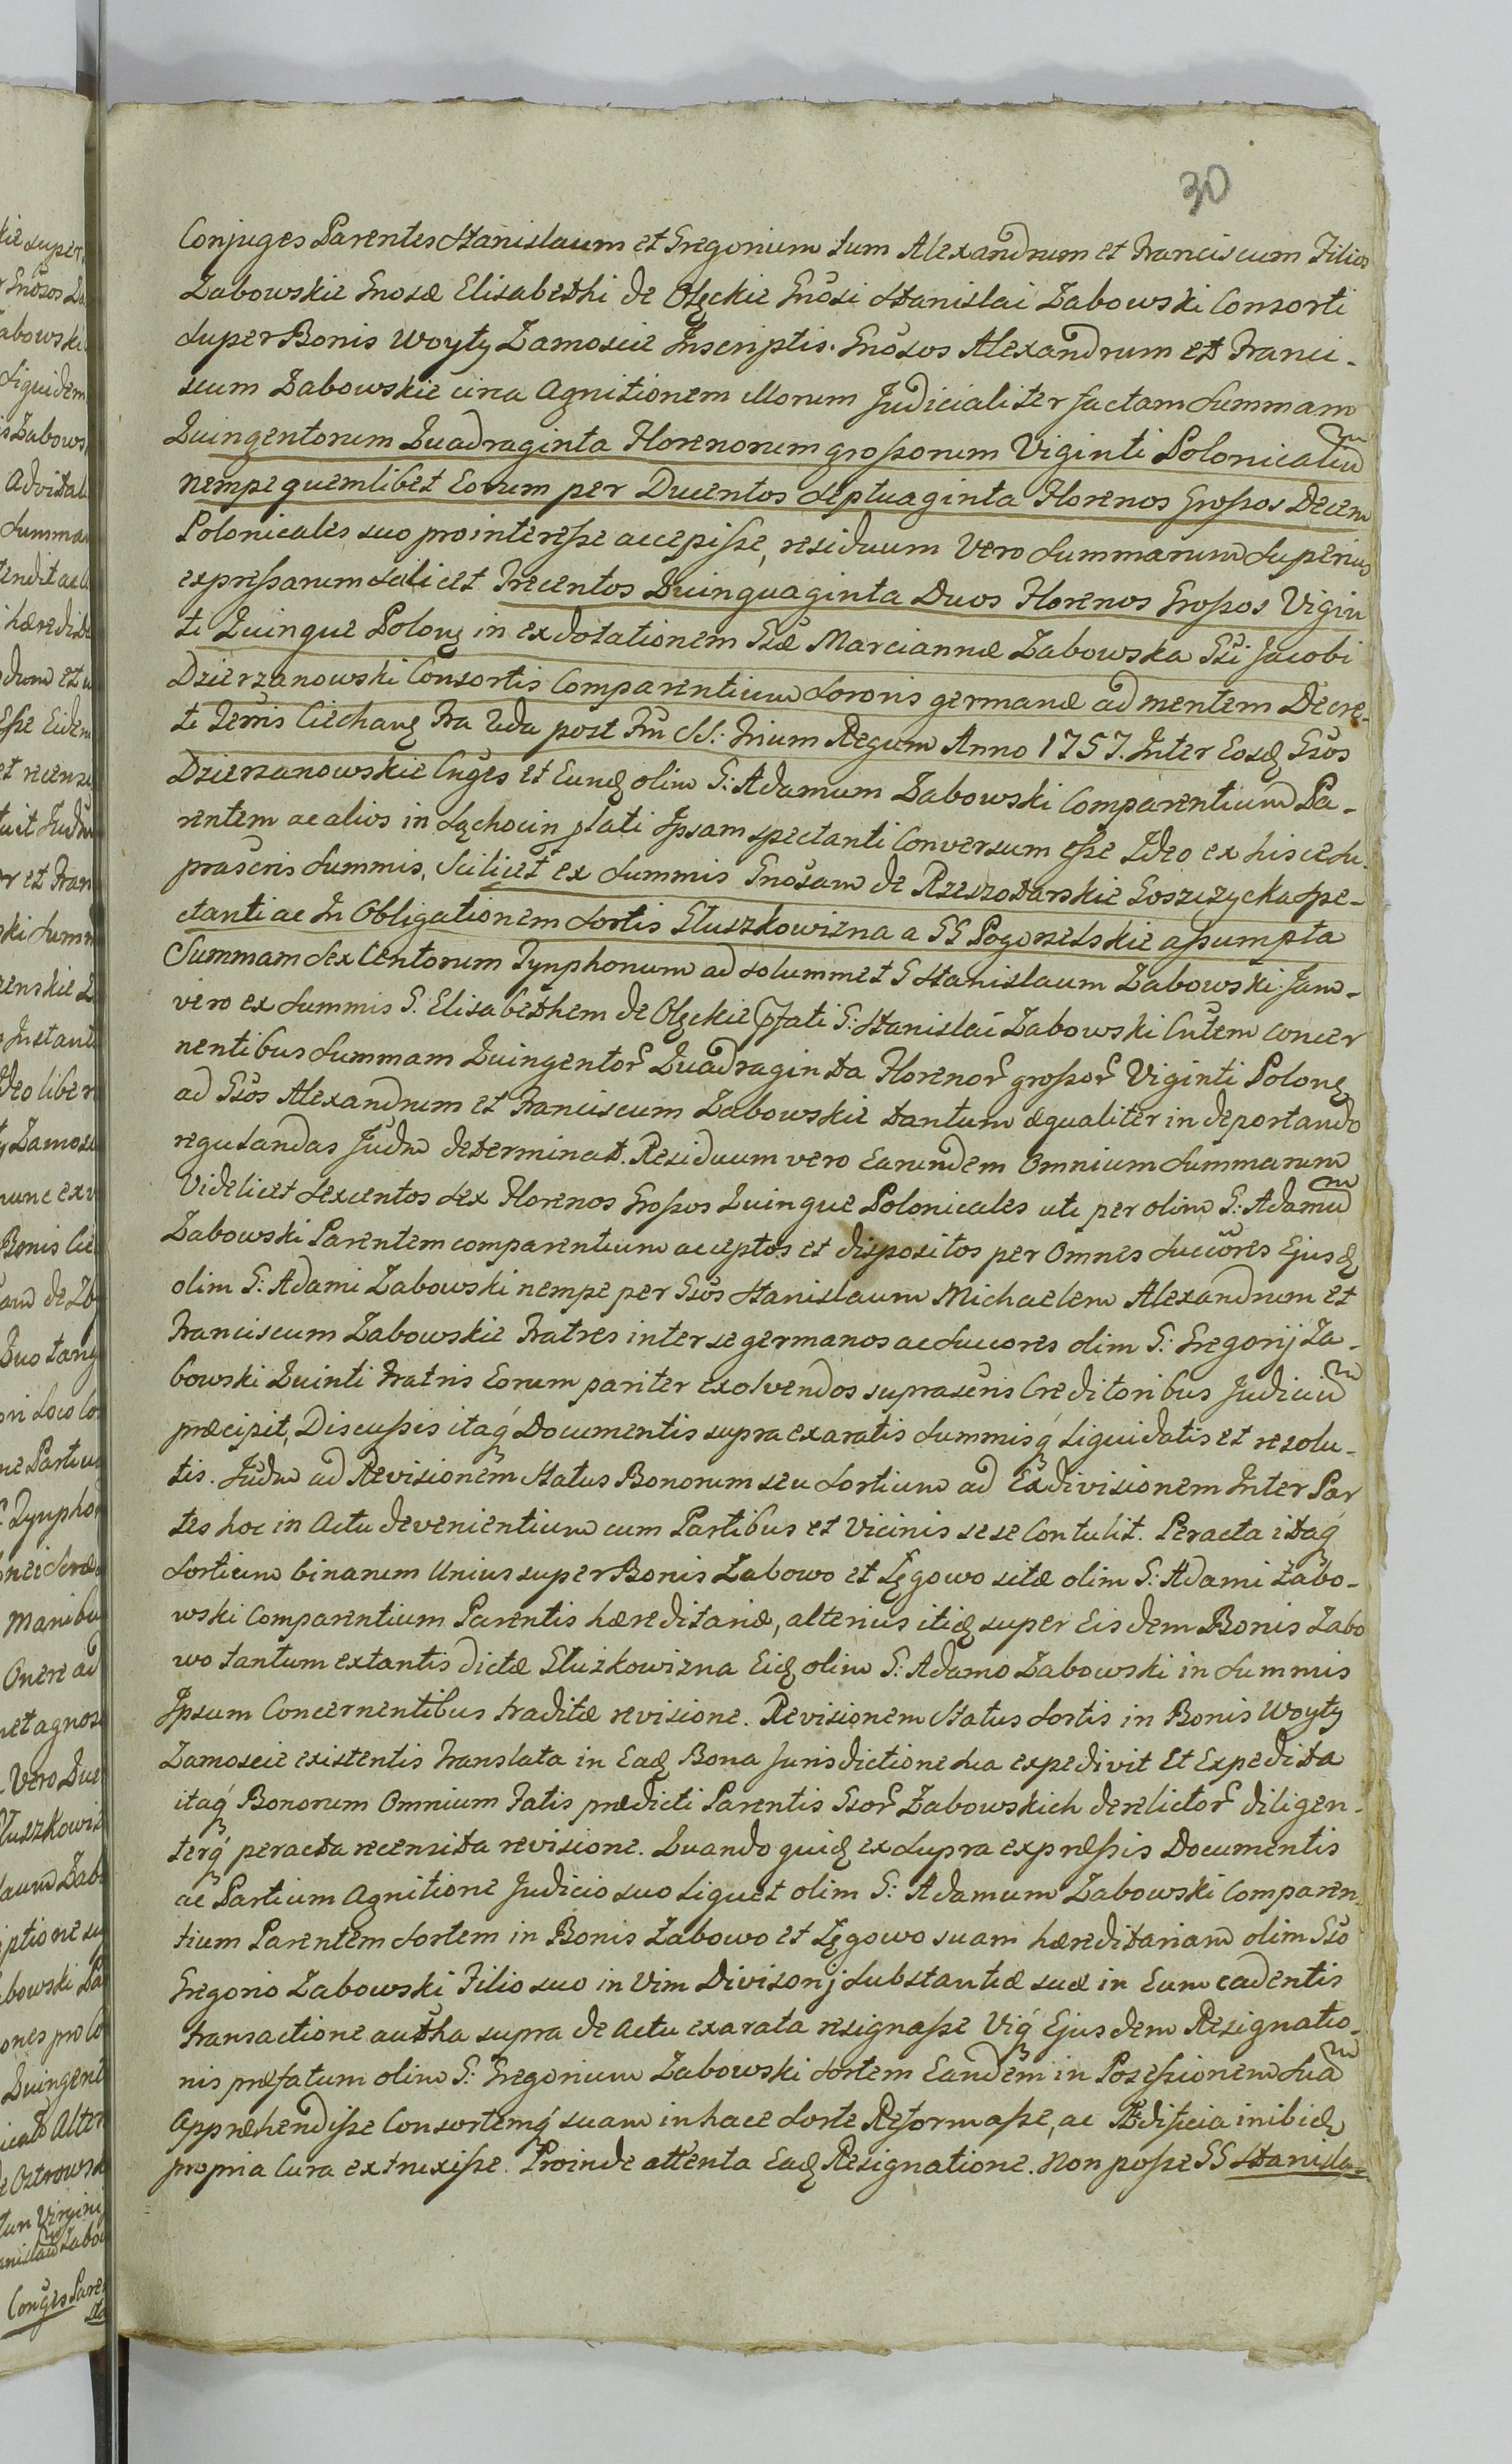 30
Conjuges Parentes Stanislaum et Gregorium tum Alexandrum et Franciscum Filios
Zabowskie Gnosæ Elisabethi de Olęckie Gnosi Stanislai Zabowski Consorti
super Bonis Woyty Zamoscie Inscriptis. Gnosos Alexandrum et Franci-
scum Zabowskie circa Agnitionem Illorum Judicialiter factam Summam
Quingentorum Quadraginta Florenorum grossorum Viginti Polonicaliu
nempe quemlibet Eorum per Ducentos Septuaginta Florenos Grossos Decem
Polonicales suo pro interesse accepisse, residuum Vero Summarum Superius
expressarum scilicet Trecentos Quinquaginta Duos Florenos Grossos Vigin
ti Quinque Polonꝫ in exdotationem Gsæ Mariannæ Zabowska Gsi Jacobi
Dzierzanowski Consortis Comparentium Sororis germanæ ad mentem Decre-
ti Terris Ciechanꝫ Fra 2da post Fm SS: Trium Regum Anno 1757. Inter Eosꝫ Gsos
Dzierzanowskie Cnges et Eunꝫ olim G: Adamum Zabowski Comparentium Pa-
rentem ac alios in Sąchocin plati Ipsam spectanti Conversum esse Ideo ex hisce Su-
prascris Summis, Scilicet ex Summis Gnosam de Rzeszotarskie Goszczycka spe-
ctanti ac In Obligationem Sortis Gluszkowizna a GG Pogorzelskie assumpta
Summam Sex Centorum Tynphonum ad solummet G Stanislaum Zabowski Jam-
vero ex Summis G. Elisabethem de Olęckie pfati G: Stanislai Zabowski Cntem concer
nentibus Summam Quingentor Quadraginta Florenor grossor Viginti Polonꝫ
ad Gsos Alexandrum et Franciscum Zabowskie tantum æqualiter in deportando
regulandas Judm determinat. Residuum vero Earundem Omnium Summarum
Videlicet Sexcentos Sex Florenos Grossos Quinque Polonicales uti per olim G: Adamu
Zabowski Parentem comparentium acceptos et dispositos per Omnes Succores Ejusꝫ
olim G: Adami Zabowski nempe per Gsos Stanislaum Michaelem Alexandrum et
Franciscum Zabowskie Fratres inter se germanos ac Succores olim G: Gregorij Za-
bowski Quinti Fratris Eorum pariter exolvendos suprascris Creditoribus Judiciu
præcipit, Discussis itaq Documentis supra exaratis Summisq Liquidatis et resolu-
tis. Judm ad Revisionem Status Bonorum seu Sortium ad Exdivisionem Inter Par
tes hoc in Actu devenientium cum Partibus et Vicinis sese Contulit. Peracta itaq
Sortium binarum Unius super Bonis Zabowo et Łęgowo sitæ olim G: Adami Zabo-
wski Comparentium Parentis hæreditariæ, alterius itiꝫ super Eisdem Bonis Zabo
wo tantum extantis dictæ Gluzkowizna Eiꝫ olim G: Adamo Zabowski in Summis
Ipsum Concernentibus traditæ revisione. Revisionem Status Sortis in Bonis Woyty
Zamoscie existentis Translata in Eaꝫ Bona Jurisdictione sua expedivit Et Expedita
itaq Bonorum Omnium Fatis prædicti Parentis Gsor Zabowskich derelictor diligen-
terq peracta recensita revisione. Quando quiꝫ ex Supra expressis Documentis
ac Partium Agnitione Judicio suo Liquet olim G: Adamum Zabowski Comparen-
tium Parentem Sortem in Bonis Zabowo et Łęgowo suam hæreditariam olim Gso
Gregorio Zabowski Filio suo in Vim Divisorij Substantiæ suæ in Eum cadentis
transactione autha supra de Actu exarata resignasse Viq Ejusdem Resignatio-
nis præfatum olim G: Gregorium Zabowski Sortem Eandem in Posessionem Sua
Appræhendisse Consortemq suam in hace Sorte Reformasse, ac Ædificia inibiꝫ
propria Cura extruxisse. Proinde attenta Eaꝫ Resignatione. Non posse GG Stanisla-